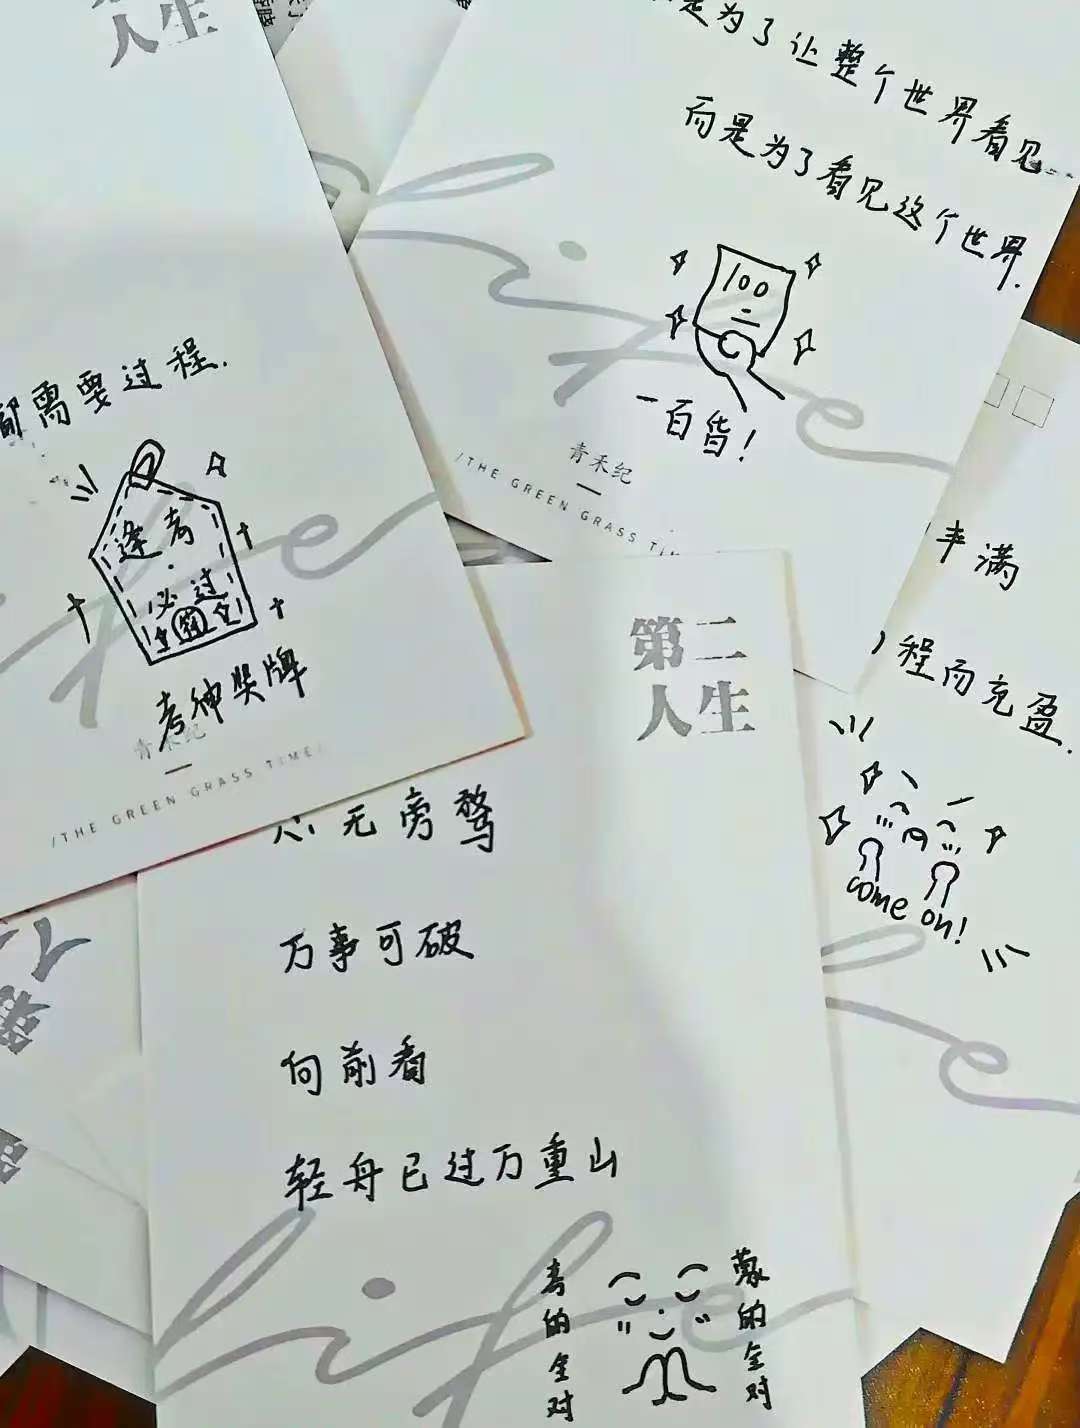 人生
需要过程.
逢考
必过
考神奖牌
青禾纪
/THE GREEN GRASS TIME/
是为了让整个世界看见
而是为了看见这个世界.
100
一百昏!
青禾纪
/THE GREEN GRASS TIM
丰满
程而充盈.
come on!
第二
人生
心无旁骛
万事可破
向前看
轻舟已过万重山
考的全对
蒙的全对
life